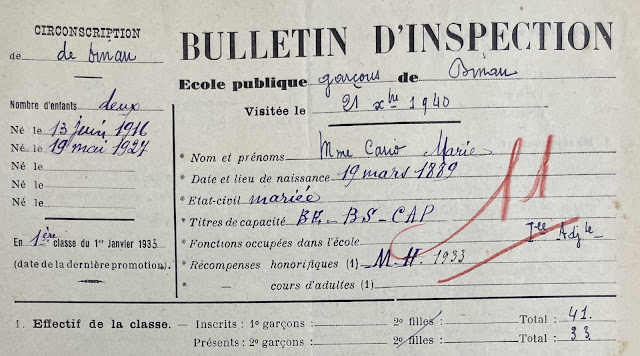 CIRCONSCRIPTION
de dinan
Nombre d'enfants deux
Né le 13 juin 1916
Né le 19 mai 1927
Né le
Né le
Né le
En 1ère classe du 1er Janvier 1933
(date de la dernière promotion).
BULLETIN D'INSPECTION
Ecole publique garçons de Dinan
Visitée le 21 xbre 1940
* Nom et prénoms Mme Cario Marie
* Date et lieu de naissance 19 mars 1889
* Etat-civil mariée
* Titres de capacité BE - BS - CAP
* Fonctions occupées dans l'école Ice Adjte
* Récompenses honorifiques (1) M.H. 1933
* — cours d'adultes (1)
11
1. Effectif de la classe. — Inscrits : 1o garçons : 2o filles : Total : 41.
Présents : 2o garçons : 2o filles : Total : 33.